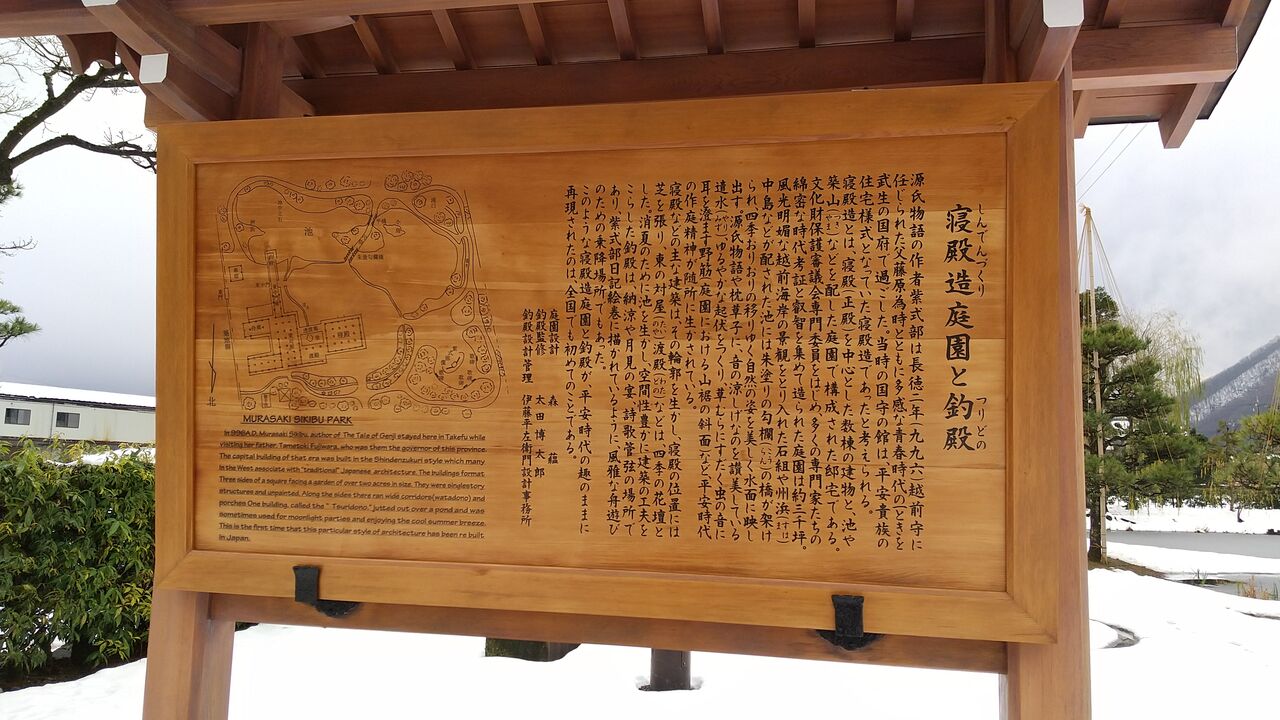 寝殿造庭園と釣殿
しんでんづくり
つりどの
源氏物語の作者紫式部は長徳二年(九九六)越前守に
任じられた父藤原為時とともに多感な青春時代のひとときを
武生の国府で過ごした。当時の国守の館は平安貴族の
住宅様式となっていた寝殿造であったと考えられる。
寝殿造とは、寝殿(正殿)を中心とした数棟の建物と、池や
築山などを配した庭園で構成された邸宅である。
文化財保護審議会専門委員をはじめ、多くの専門家たちの
綿密な時代考証と叡智を集めて造られた庭園は約三千坪。
風光明媚な越前海岸の景観をとり入れた石組や州浜
中島などが配された池には朱塗りの勾欄の橋が架け
られ、四季おりおりの移りゆく自然の姿を美しく水面に映し
出す。源氏物語や枕草子に、音の涼しげなのを讃美している
遣水ゆるやかな起伏をつくり、草むらにすだく虫の音に
耳を澄ます野筋、庭園における山裾の斜面など平安時代
の作庭精神が随所に生かされている。
寝殿などの主な建築は、その輪郭を生かし、寝殿の位置には
芝を張り、東の対屋渡殿などは、四季の花壇と
した。消夏のために池を生かし、空間性豊かに建築の工夫を
こらした釣殿は、納涼や月見の宴、詩歌管弦の場所で
あり、紫式部日記絵巻に描かれているように風雅な舟遊び
のための乗降場所でもあった。
このような寝殿造庭園と釣殿が、平安時代の趣のままに
再現されたのは全国でも初めてのことである。
庭園設計 森 蘊
釣殿監修 太田博太郎
釣殿設計管理 伊藤平左衛門設計事務所
池
朱塗勾欄橋
釣殿
寝殿
北
MURASAKI SIKIBU PARK
In 996A.D. Murasaki Sikibu, author of The Tale of Genji stayed here in Takefu while
visiting her father, Tametoki Fujiwara, who was them the governor of this province.
The capital building of that era was built in the Shindenzukuri style which many
in the West associate with "traditional" Japanese architecture. The buildings format
Three sides of a square facing a garden of over two acres in size. They were singlestory
structures and unpainted. Along the sides there ran wide corridors(watadono) and
porches One building, called the " Tsuridono," jutted out over a pond and was
sometimes used for moonlight parties and enjoying the cool summer breeze.
This is the first time that this particular style of architecture has been re built
in Japan.